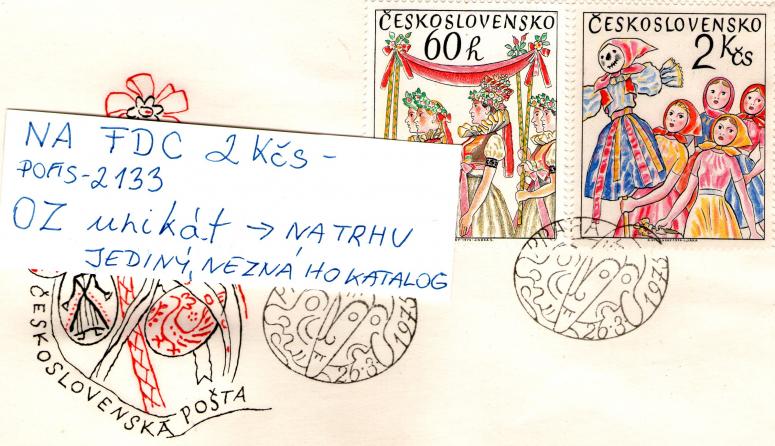 ČESKOSLOVENSKO
60 h
ČESKOSLOVENSKO
2 Kčs
NA FDC 2 Kčs –
POFIS-2133
OZ unikát → NA TRHU
JEDINÝ, NEZNÁ HO KATALOG
ČESKOSLOVENSKÁ POŠTA
26.3. 1975
PRAHA
26.3. 1975